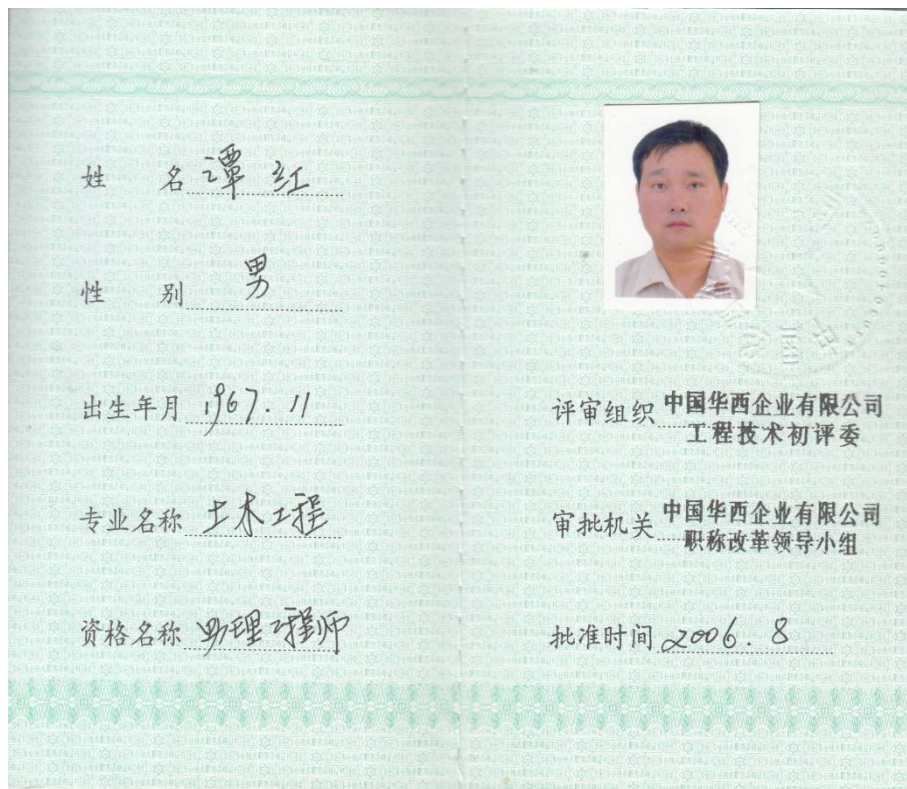 姓 名 谭红
性 别 男
出生年月 1967.11
专业名称 土木工程
资格名称 助理工程师
评审组织 中国华西企业有限公司
工程技术初评委
审批机关 中国华西企业有限公司
职称改革领导小组
批准时间 2006.8